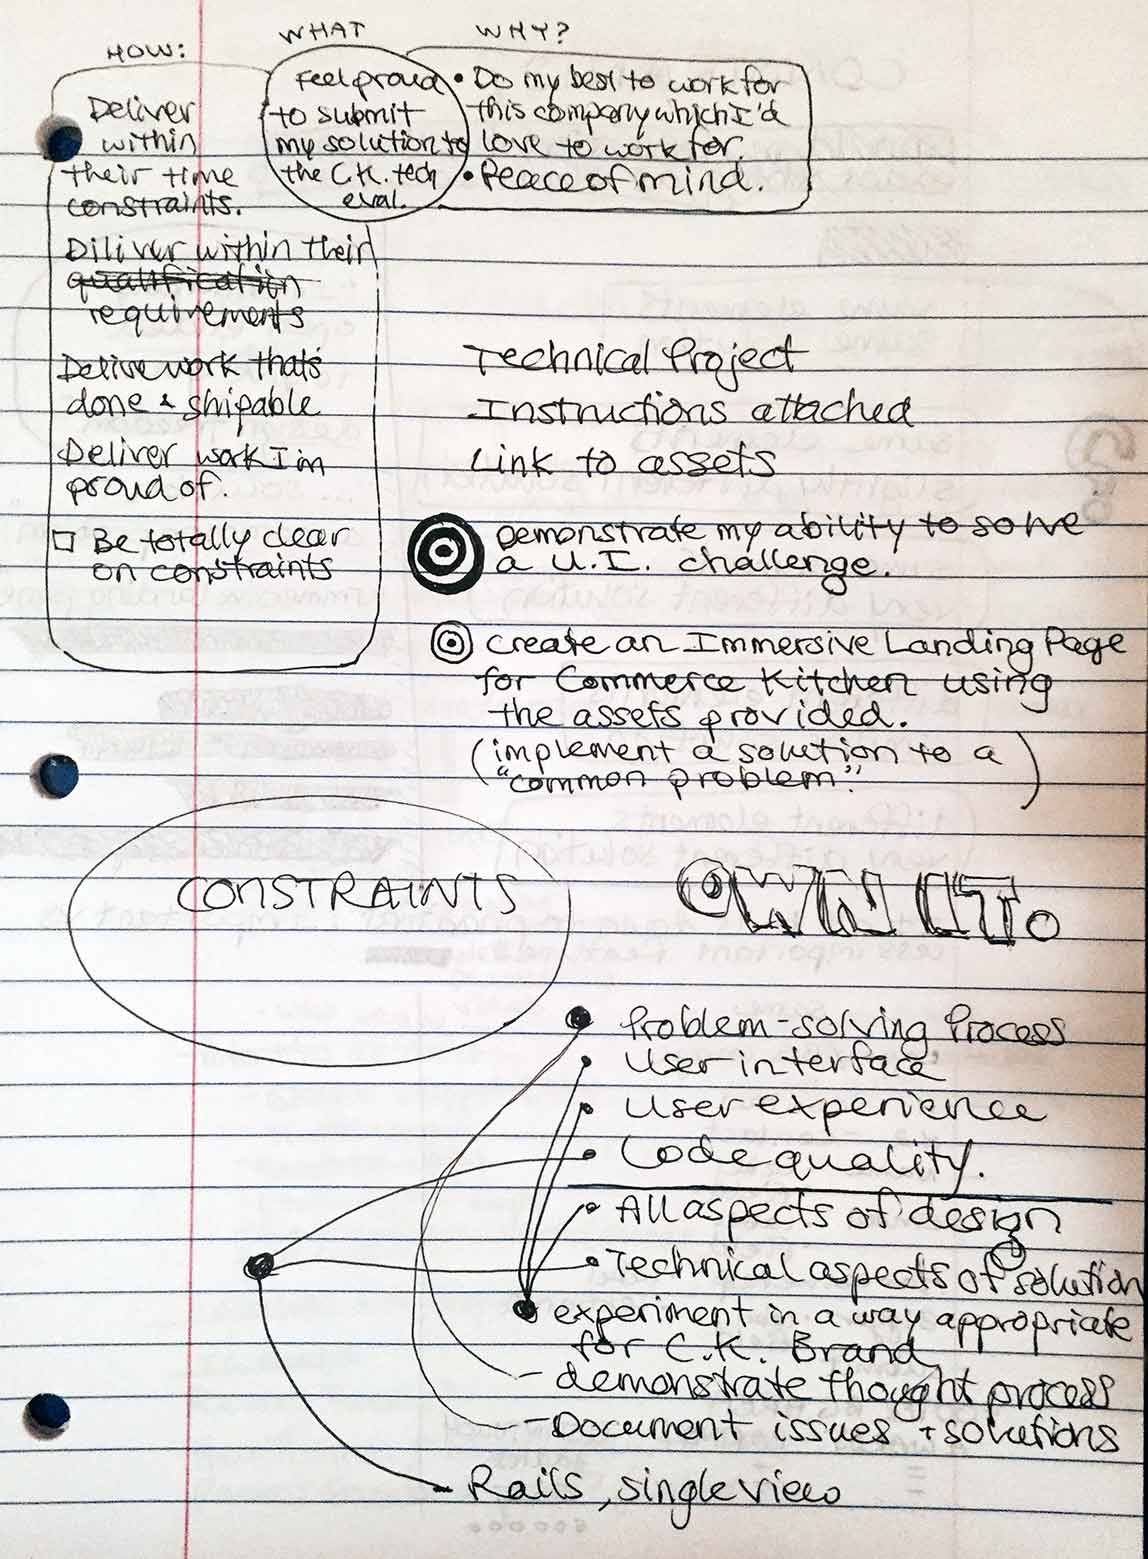 HOW:
Deliver
within
their time
constraints.
Diliver within their
qualification
requirements
Delive work thats
done & shipable
Deliver work I'm
proud of.
Be totally clear
on constraints
WHAT
Feel proud
to submit
my solution to
the C.K. tech
eval.
WHY?
• Do my best to work for
this company which I'd
love to work for.
• Peace of mind.
Technical Project
Instructions attached
Link to assets
Demonstrate my ability to solve
a U.I. challenge.
create an Immersive Landing Page
for Commerce Kitchen using
the assets provided.
(implement a solution to a
"common problem.")
CONSTRAINTS
OWN IT.
• Problem-solving Process
• User interface
• User experience
• Code quality.
• All aspects of design
• Technical aspects of solution
• experiment in a way appropriate
for C.K. Brand
- demonstrate thought process
- Document issues + solutions
- Rails, single view